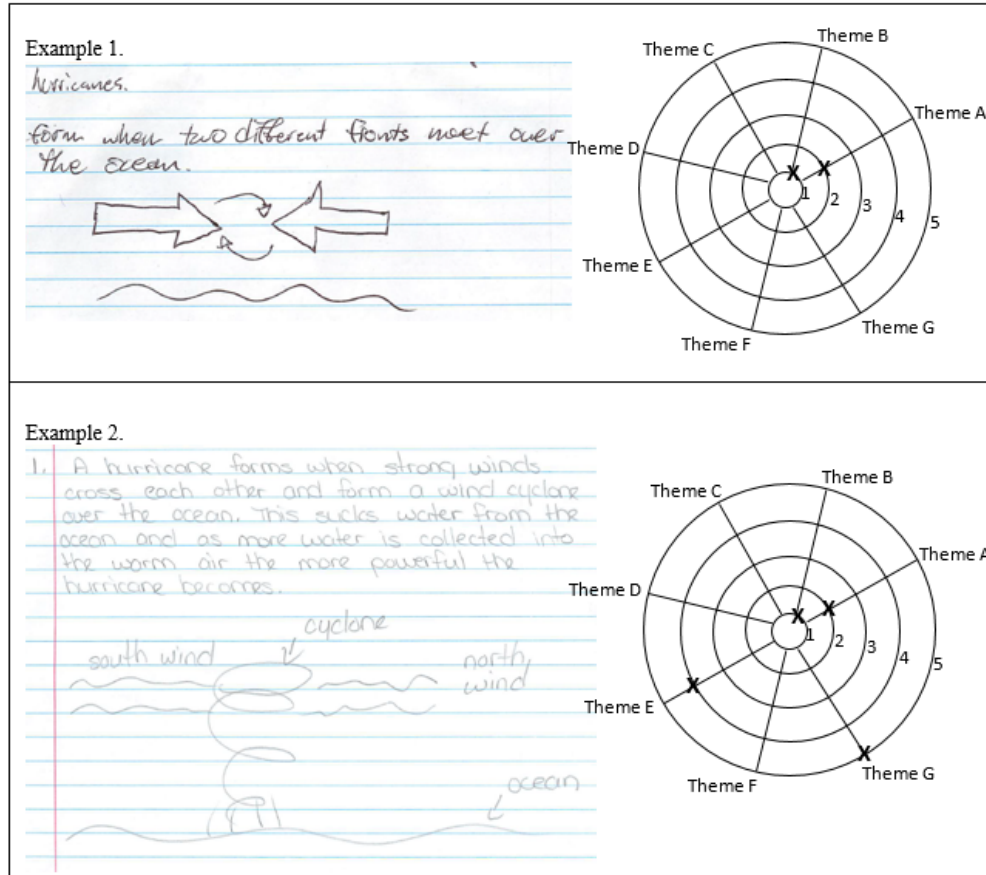 Example 1.
hurricanes.
form when two different fronts meet over
the ocean.
Theme C
Theme B
Theme A
Theme D
1
2
3
4
5
Theme E
Theme F
Theme G
Example 2.
1. A hurricane forms when strong winds
cross each other and form a wind cyclone
over the ocean. This sucks water from the
ocean and as more water is collected into
the warm air the more powerful the
hurricane becomes.
cyclone
south wind
north
wind
ocean
Theme C
Theme B
Theme A
Theme D
1
2
3
4
5
Theme E
Theme F
Theme G